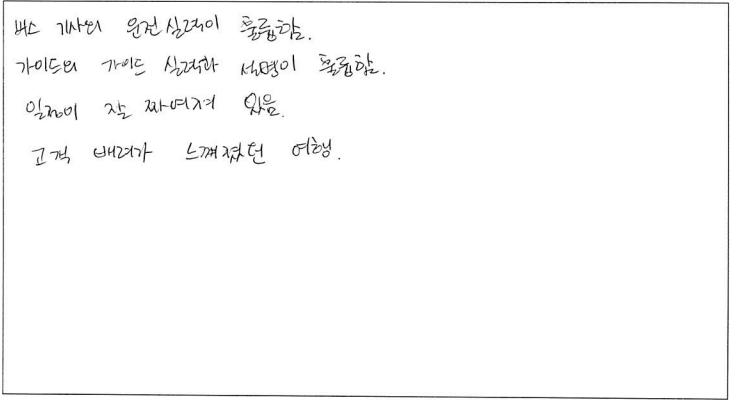 버스 기사의 운전실력이 훌륭함.
가이드의 가이드 실력과 설명이 훌륭함.
일정이 잘 짜여져 있음.
고객 배려가 느껴졌던 여행.